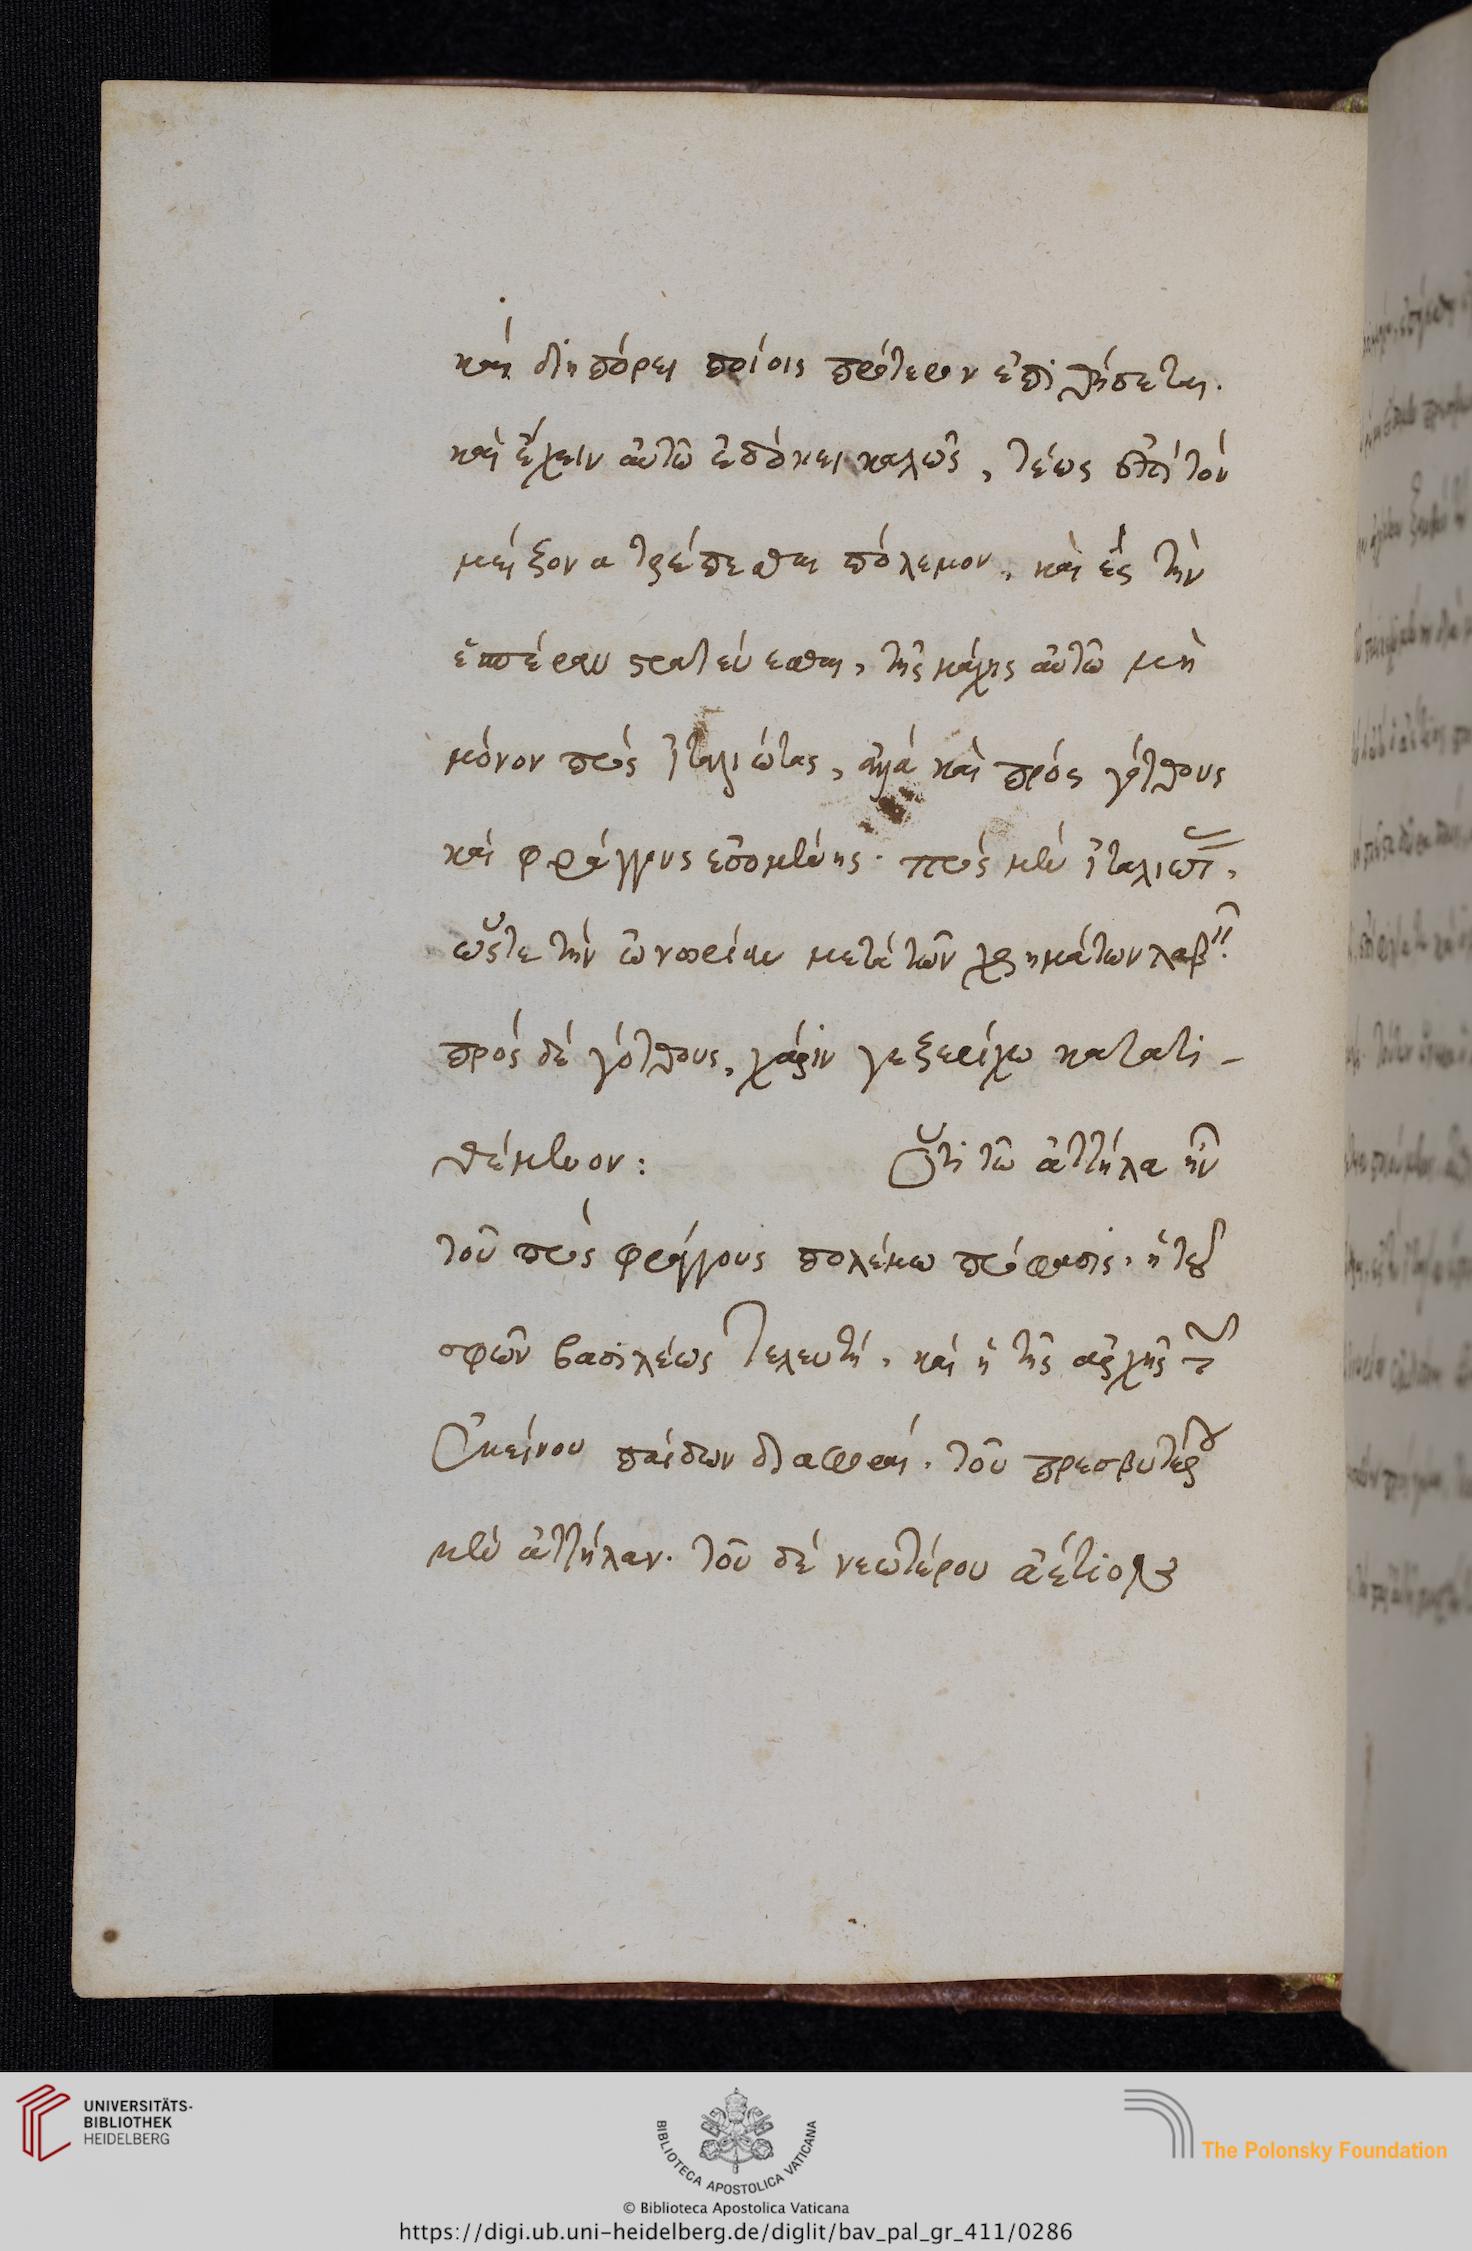 καὶ διηπόρει ποίοις πρότερον ἐπιθήσεται.
καὶ ἔχειν αὐτῶ ἐδόκει καλῶς, τέως ἐπὶ τὸν
μείζονα τρέπεσθαι πόλεμον, καὶ ἐς τὴν
ἑσπέραν στρατεύεσθαι, τῆς μάχης αὐτῶ μὴ
μόνον πρὸς ἰταλιώτας, ἀλλὰ καὶ πρὸς γότθους
καὶ φράγγους ἐσομένης· πρὸς μὲν ἰταλιώτ,
ὥστε τὴν ὀνωρίαν μετὰ τῶν χρημάτων λαβ
πρὸς δὲ γότθους, χάριν γεζερίχω κατατι-
θέμενον: Ὅτι τῶ ἀττήλα ἦν
τοῦ πρὸς φράγγους πολέμου πρόφασις, ἡ τοῦ
σφῶν βασιλέως τελευτὴ, καὶ ἡ τῆς ἀρχῆς τ
ἐκείνου παίδων διαφορὰ, τοῦ πρεσβυτέρου
μὲν ἀττήλαν. τοῦ δὲ νεωτέρου ἀέτιον
UNIVERSITÄTS-
BIBLIOTHEK
HEIDELBERG
BIBLIOTECA APOSTOLICA VATICANA
The Polonsky Foundation
© Biblioteca Apostolica Vaticana
https://digi.ub.uni-heidelberg.de/diglit/bav_pal_gr_411/0286